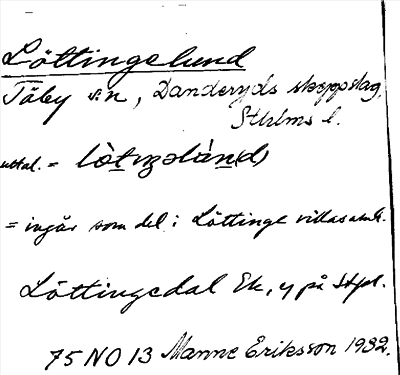 Löttingelund
Täby sn, Danderyds skeppslag,
Sthlms l.
uttal. =
= ingår som del i Löttinge villasamh.
Löttingedal Ek, y på Stpl.
75 NO 13 Manne Eriksson 1932.